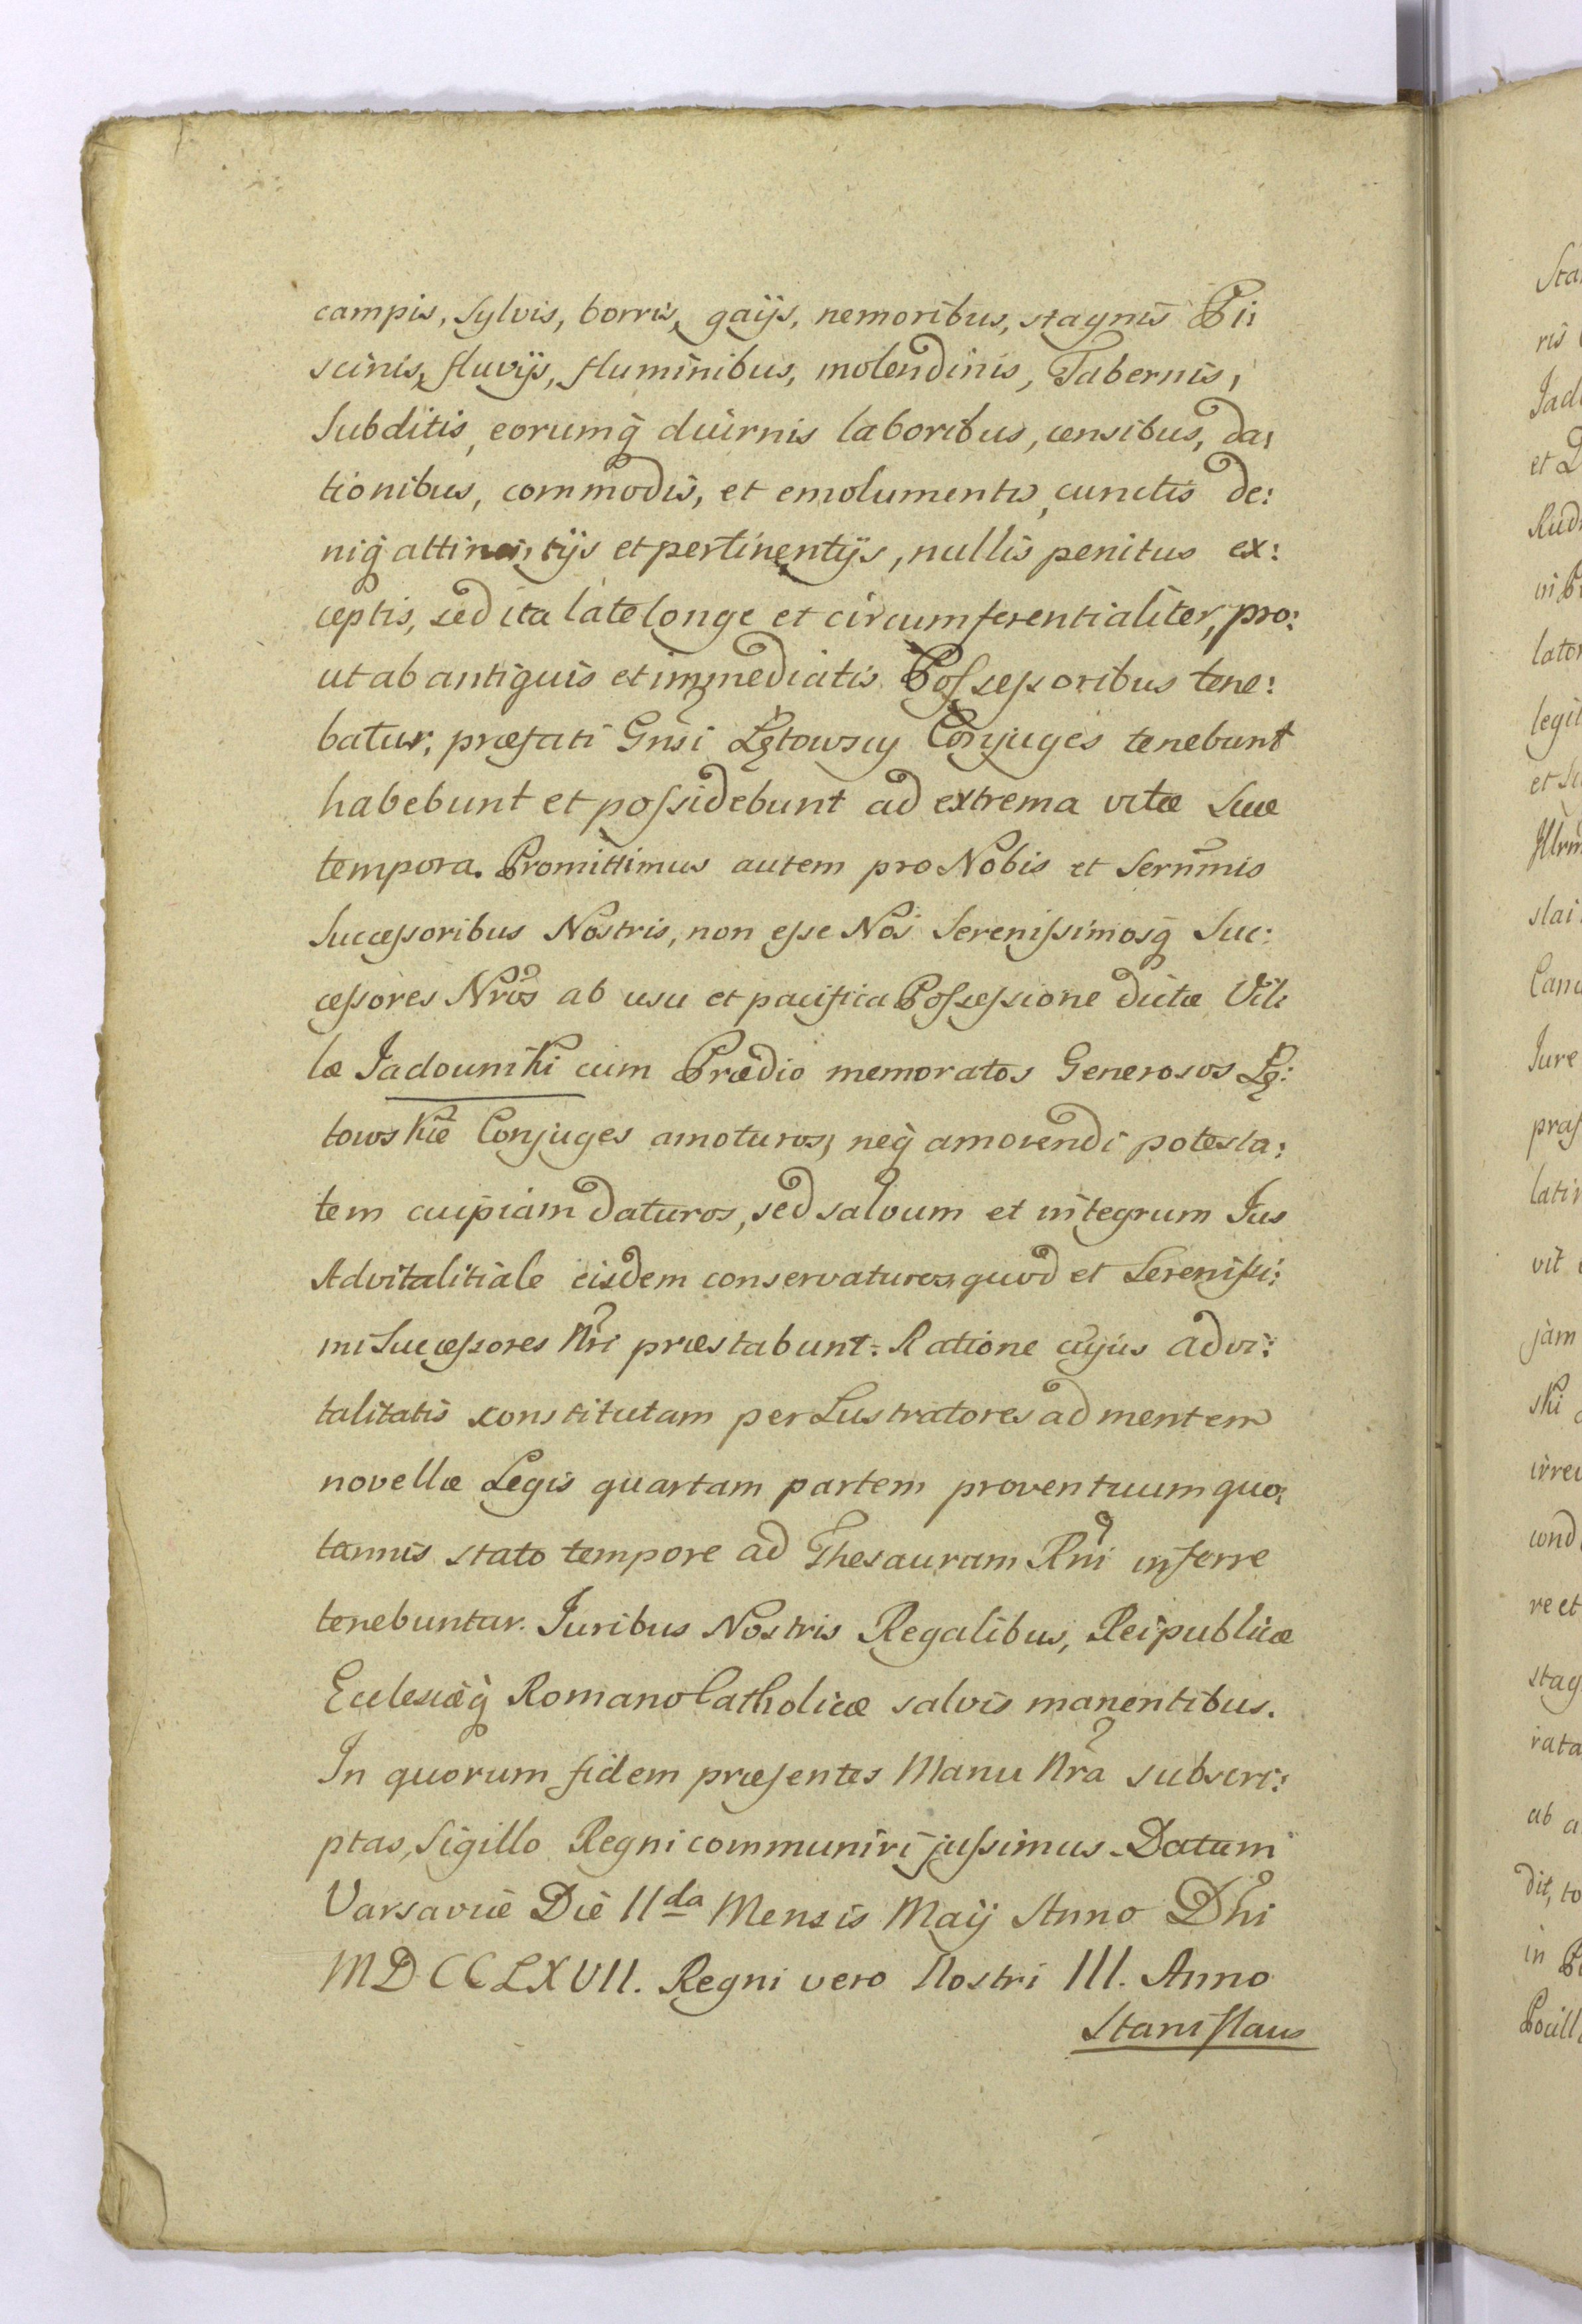 campis, sylvis, borris, gaijs, nemoribus, stagnis Pi:
scinis, fluvijs, fluminibus, molendinis, Tabernis,
Subditis, eorumq̀ diurnis laboribus, censibus, da:
tionibus, commodis, et emolumentis, cunctis de:
niq̀ attinentijs et pertinentijs, nullis penitus ex:
ceptis, sed ita late longe et circumferentialiter, pro:
ut ab antiquis et immediatis Poſseſsoribus tene:
batur, præfati Gnsi Łętowscy Conjuges tenebunt
habebunt et poſsidebunt ad extrema vitæ suæ
tempora. Promittimus autem pro Nobis et Sernmis
Succeſsoribus Nostris, non eſse Nos Sereniſsimosq̀ Suc:
ceſsores Nros ab usu et pacifica Poſseſsione dictæ Vil:
læ Jadowniki cum Prædio memoratos Generosos Łę:
towskie Conjuges amoturos, neq̀ amovendi potesta:
tem cuipiam daturos, sed salvum et integrum Jus
Advitalitiale eisdem conservaturos, quod et Sereniſsi:
mi Succeſsores Nri præstabunt. Ratione cujus advi:
talitatis constitutam per Lustratores ad mentem
novellæ Legis quartam partem proventuum quo:
tannis stato tempore ad Thesaurum Rni inferre
tenebuntur. Juribus Nostris Regalibus, Reipublicæ
Ecclesiæq̀ Romano Catholicæ salvis manentibus.
In quorum fidem præsentes Manu Nra subscri:
ptas, Sigillo Regni communiri juſsimus. Datum
Varsaviæ Die 11da Mensis Maij Anno Dni
MDCCLXVII. Regni vero Nostri III. Anno
Stanislaus